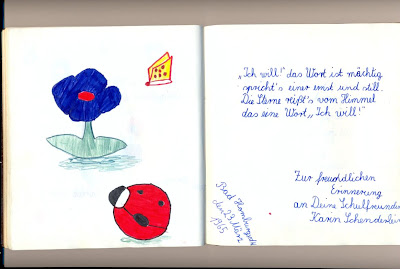 „Ich will!" das Wort ist mächtig
spricht's einer ernst und still.
Die Sterne reißt's vom Himmel
das eine Wort „Ich will!"
Zur freundlichen
Erinnerung
an Deine Schulfreundin
Karin Schenderlein
Bad Homburg
den 23. März
1965